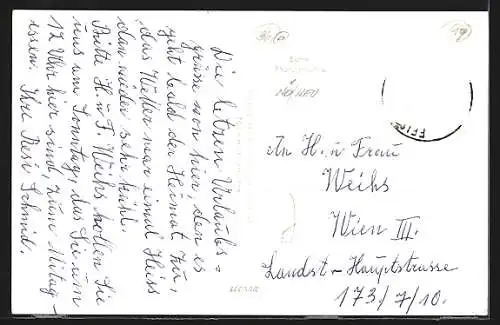 Die letzen Urlaubs=
grüsse von hier den es
geht bald der Heimat zu,
das Wetter war einmal Heiss
den wieder sehr kühl.
Bitte H. u F. Weihs hollen Sie
uns am Sonntag, das Sie um
12 Uhr hier sind, zum Mitag-
essen. Ihre Resi Schmid.
An H. u Frau
Weihs
Wien III.
Landst - Hauptstrasse
173/7/10.